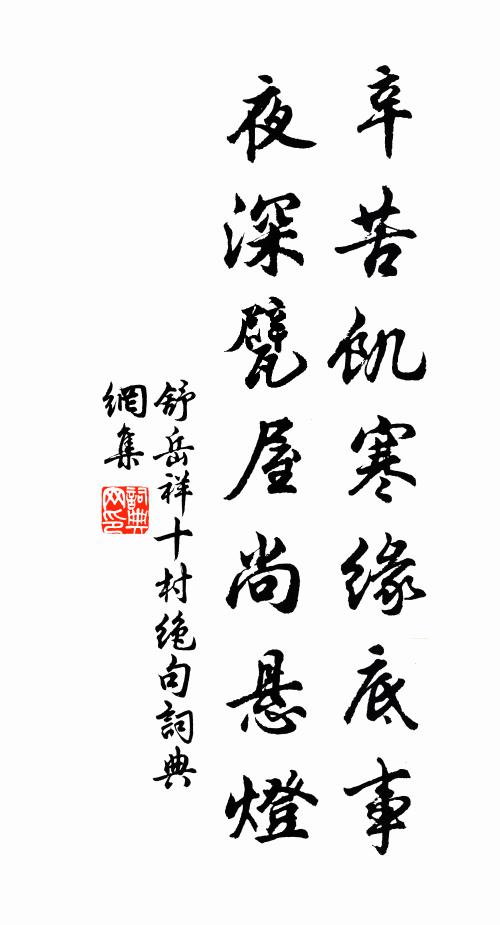 辛苦飢寒缘底事
夜深甓屋尚悬燈
舒岳祥十村绝句詞典
網集
詞典网印